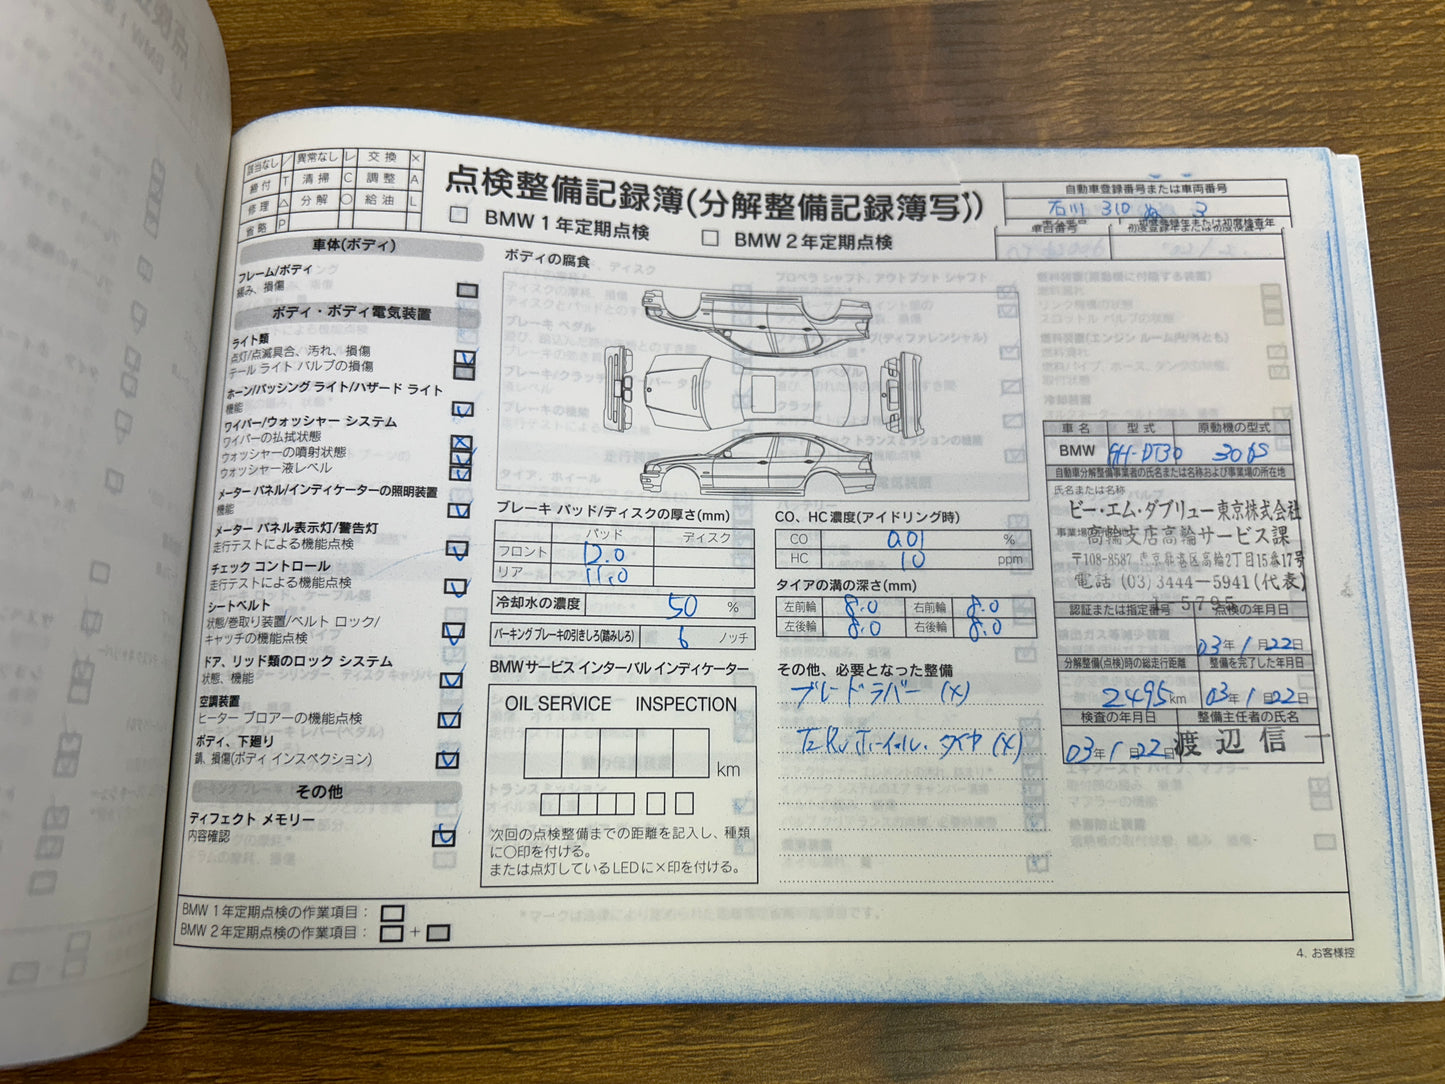 該当なし / 異常なし レ 交換 ×
締付 T 清掃 C 調整 A
修理 △ 分解 ○ 給油 L
省略 P
点検整備記録簿(分解整備記録簿写))
□ BMW 1年定期点検 □ BMW 2年定期点検
自動車登録番号または車両番号
石川 310 ぬ 3
車台番号 初度登録年または初度検査年
車体(ボディ)
フレーム/ボディ
緩み、損傷
ボディ・ボディ電気装置
ライト類
点灯/点滅具合、汚れ、損傷
テール ライト バルブの損傷
ホーン/パッシング ライト/ハザード ライト
機能
ワイパー/ウォッシャー システム
ワイパーの払拭状態
ウォッシャーの噴射状態
ウォッシャー液レベル
メーター パネル/インディケーターの照明装置
機能
メーター パネル表示灯/警告灯
走行テストによる機能点検
チェック コントロール
走行テストによる機能点検
シートベルト
状態/巻取り装置/ベルト ロック/
キャッチの機能点検
ドア、リッド類のロック システム
状態、機能
空調装置
ヒーター ブロアーの機能点検
ボディ、下廻り
錆、損傷(ボディ インスペクション)
その他
ディフェクト メモリー
内容確認
ボディの腐食
ブレーキ パッド/ディスクの厚さ(mm)
パッド ディスク
フロント 12.0
リアー 11.0
冷却水の濃度 50 %
パーキング ブレーキの引きしろ(踏みしろ) 6 ノッチ
BMWサービス インターバル インディケーター
OIL SERVICE INSPECTION
km
次回の点検整備までの距離を記入し、種類
に○印を付ける。
または点灯しているLEDに×印を付ける。
CO、HC濃度(アイドリング時)
CO 0.01 %
HC 10 ppm
タイアの溝の深さ(mm)
左前輪 8.0 右前輪 8.0
左後輪 8.0 右後輪 8.0
その他、必要となった整備
ブレードラバー (×)
ホイール、タイヤ (×)
車名 型式 原動機の型式
BMW GH-DT30 306S
自動車分解整備事業者の氏名または名称および事業場の所在地
氏名または名称
ビー・エム・ダブリュー東京株式会社
高輪支店高輪サービス課
〒108-8587 東京都港区高輪2丁目15番17号
電話 (03) 3444-5941 (代表)
1-5795
認証または指定番号 点検の年月日
03年1月22日
分解整備(点検)時の総走行距離 整備を完了した年月日
2495 km 03年1月22日
検査の年月日 整備主任者の氏名
03年1月22日 渡辺信一
BMW 1年定期点検の作業項目：□
BMW 2年定期点検の作業項目：□+□
4. お客様控